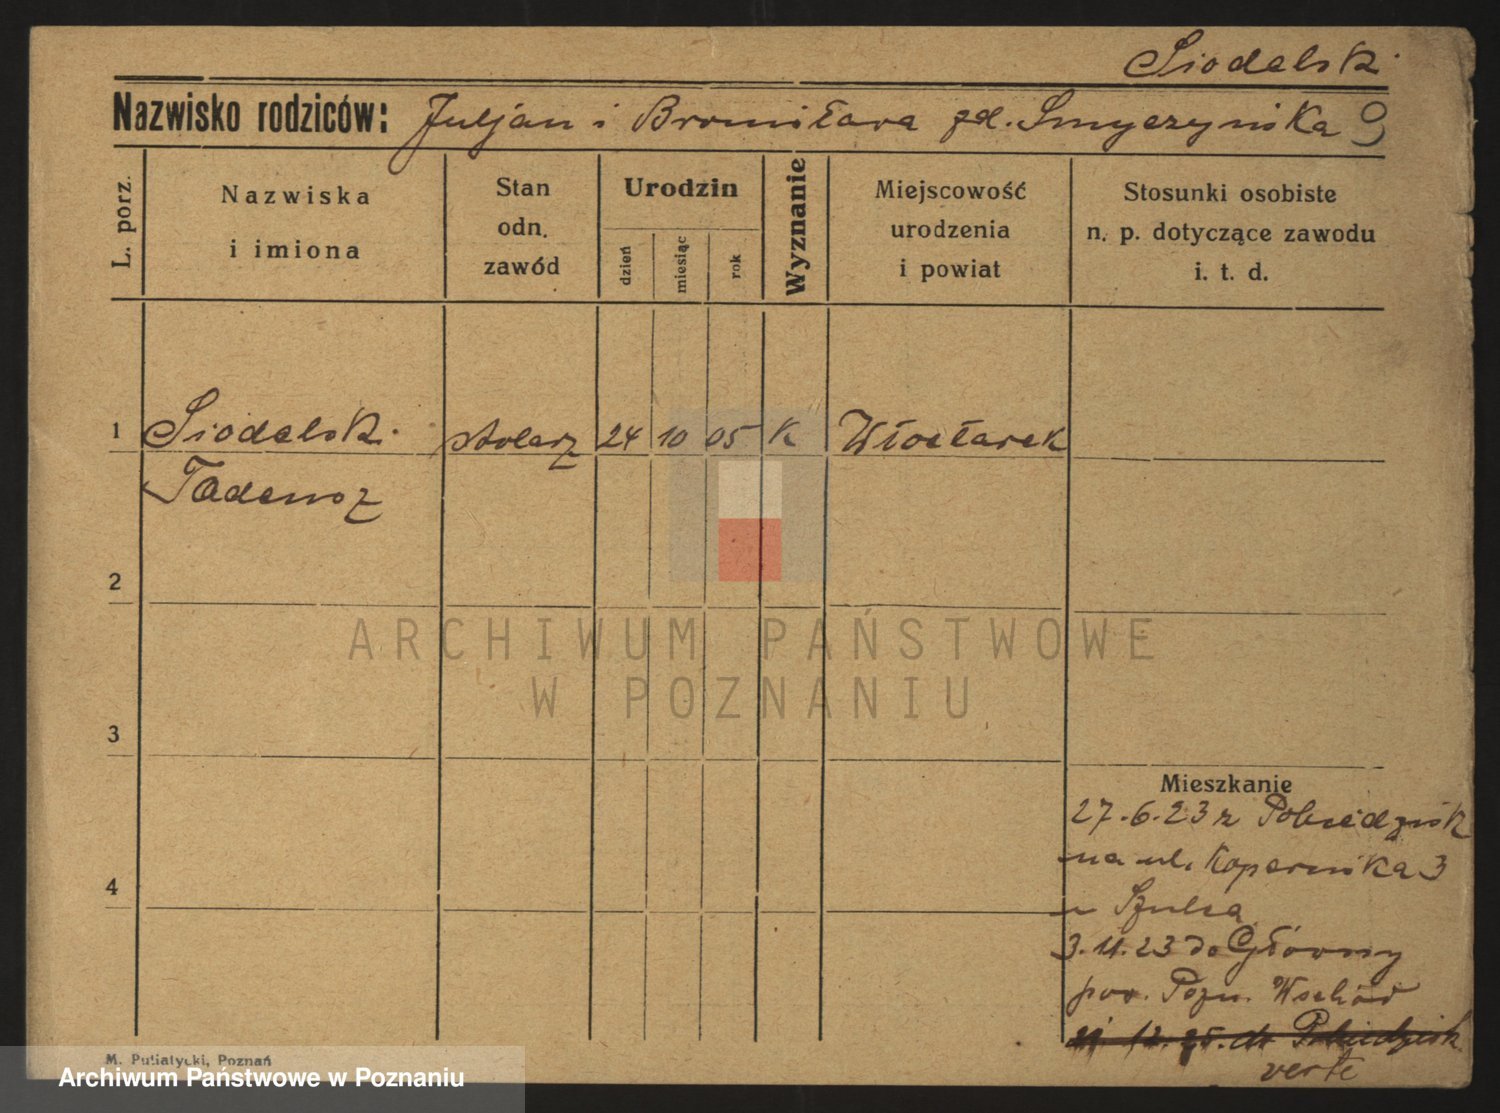 Siodelski
Nazwisko rodziców: Juljan i Bronisława zd. Smyczyńska
L. porz.
Nazwiska
i imiona
Stan
odn.
zawód
Urodzin
dzień
miesiąc
rok
Wyznanie
Miejscowość
urodzenia
i powiat
Stosunki osobiste
n. p. dotyczące zawodu
i. t. d.
1 Siodelski stolarz 24 10 05 K Włocławek
Tadeusz
2
3
4
ARCHIWUM PAŃSTWOWE
W POZNANIU
Mieszkanie
27.6.23 z Pobiedzisk
na ul. Kopernika 3
u Szulca
3.11.23 do Główny
pow. Pozn. Wschód
12.25. do Pobiedzisk
verte
M. Putiatycki, Poznań
Archiwum Państwowe w Poznaniu